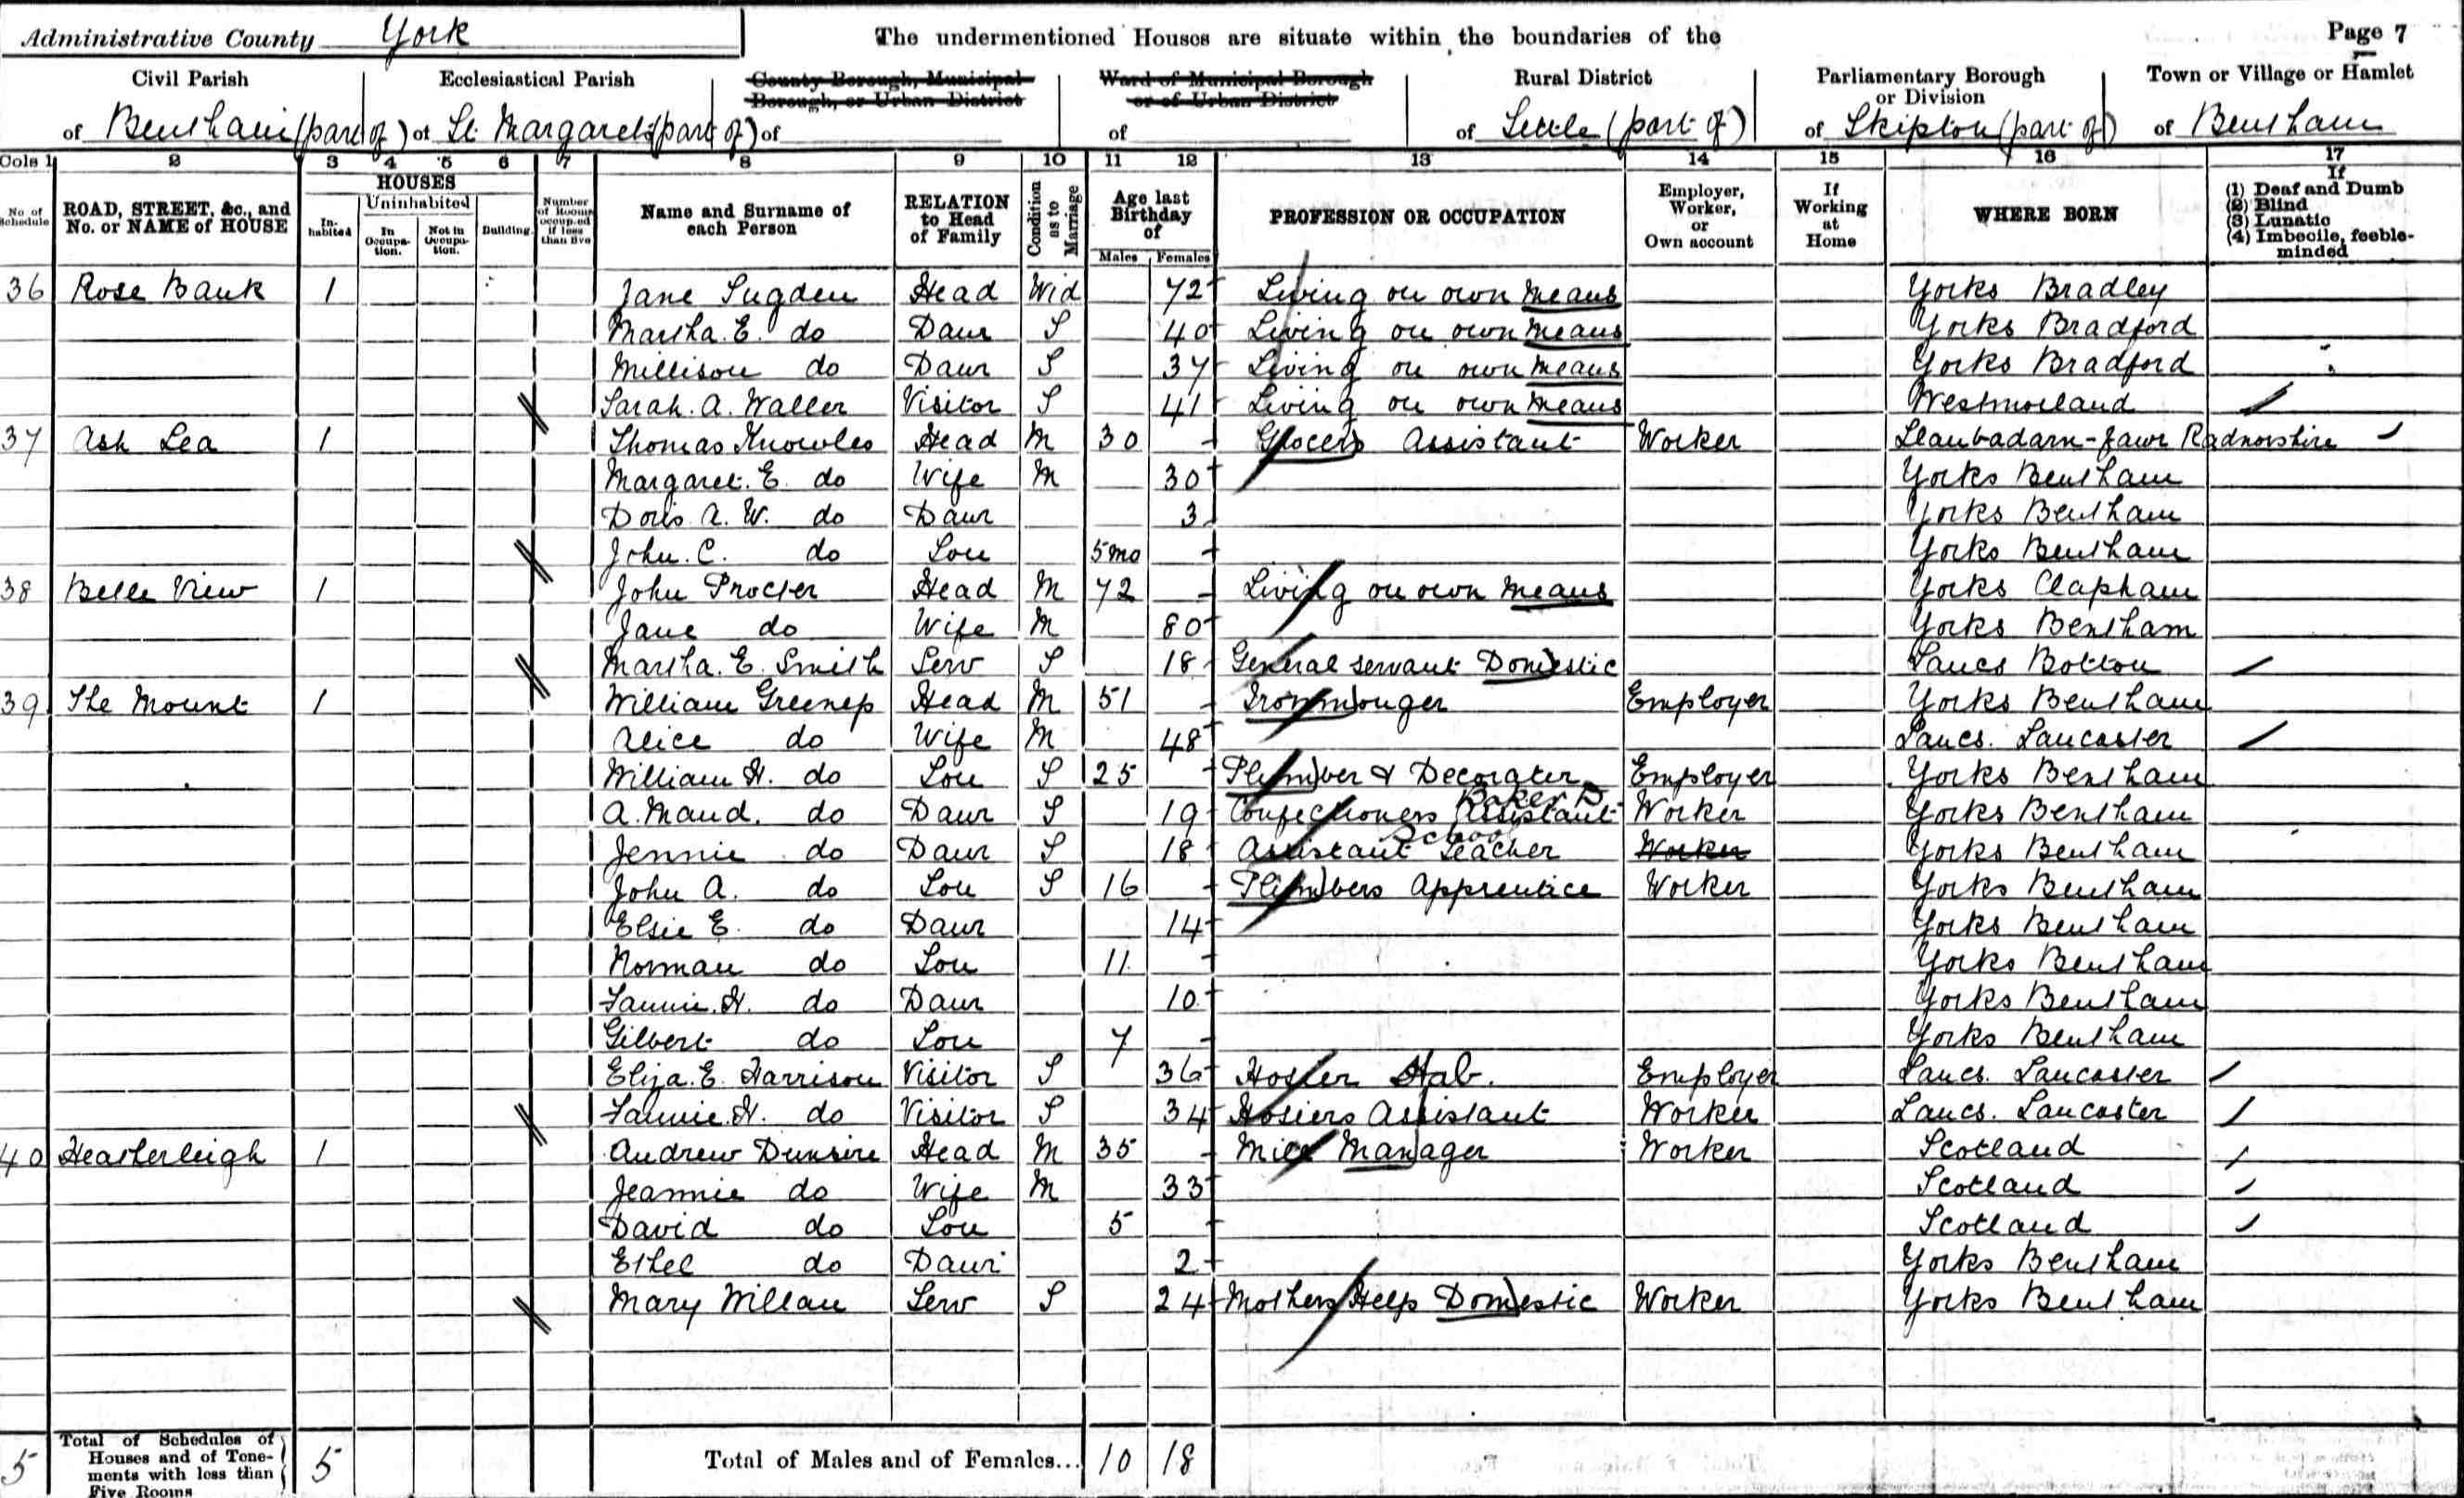 Administrative County York
The undermentioned Houses are situate within the boundaries of the
Page 7
Civil Parish of Bentham (part of)
Ecclesiastical Parish of St. Margarets (part of)
County Borough, Municipal Borough, or Urban District of
Ward of Municipal Borough or of Urban District of
Rural District of Settle (part of)
Parliamentary Borough or Division of Skipton (part of)
Town or Village or Hamlet of Bentham
Cols 1 2 3 4 5 6 7 8 9 10 11 12 13 14 15 16 17
No of Schedule
ROAD, STREET, &c., and No. or NAME of HOUSE
HOUSES
Inhabited
Uninhabited
In Occupation.
Not in Occupation.
Building
Number of Rooms occupied if less than five
Name and Surname of each Person
RELATION to Head of Family
Condition as to Marriage
Age last Birthday of
Males Females
PROFESSION OR OCCUPATION
Employer, Worker, or Own account
If Working at Home
WHERE BORN
If (1) Deaf and Dumb (2) Blind (3) Lunatic (4) Imbecile, feeble-minded
36 Rose Bank 1 Jane Sugden Head Wid 72 Living on own means Yorks Bradley
Martha. E. do Daur S 40 Living on own means Yorks Bradford
Millison do Daur S 37 Living on own means Yorks Bradford
Sarah. A. Waller Visitor S 41 Living on own means Westmorland
37 Ash Lea 1 Thomas Knowles Head M 30 Grocers Assistant Worker Llanbadarn-fawr Radnorshire
Margaret. E. do Wife M 30 Yorks Bentham
Doris A. W. do Daur 3 Yorks Bentham
John. C. do Son 5mo Yorks Bentham
38 Belle View 1 John Procter Head M 72 Living on own means Yorks Clapham
Jane do Wife M 80 Yorks Bentham
Martha. E. Smith Serv S 18 General servant Domestic Lancs Bolton
39 The Mount 1 William Greenep Head M 51 Ironmonger Employer Yorks Bentham
Alice do Wife M 48 Lancs. Lancaster
William H. do Son S 25 Plumber & Decorater Employer Yorks Bentham
Baker
A. Maud. do Daur S 19 Confectioners Assistant Worker Yorks Bentham
School
Jennie do Daur S 18 Assistant Teacher Worker Yorks Bentham
John A. do Son S 16 Plumbers Apprentice Worker Yorks Bentham
Elsie E. do Daur 14 Yorks Bentham
Norman do Son 11 Yorks Bentham
Fannie. H. do Daur 10 Yorks Bentham
Gilbert do Son 7 Yorks Bentham
Eliza. E. Harrison Visitor S 36 Hosier Employer Lancs. Lancaster
Fannie. H. do Visitor S 34 Hosiers Assistant Worker Lancs. Lancaster
40 Heatherleigh 1 Andrew Dunsire Head M 35 Mill Manager Worker Scotland
Jeannie do Wife M 33 Scotland
David do Son 5 Scotland
Ethel do Daur 2 Yorks Bentham
Mary Willan Serv S 24 Mothers Help Domestic Worker Yorks Bentham
5 Total of Schedules of Houses and of Tenements with less than Five Rooms 5 Total of Males and of Females... 10 18